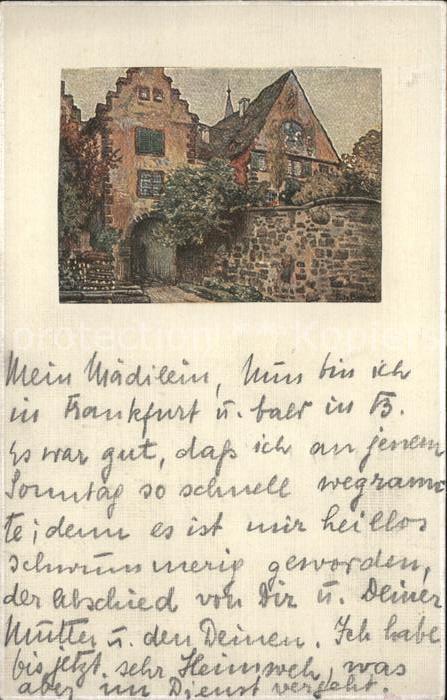 Mein Mädilein, Nun bin ich
in Frankfurt u. bald in B.
Es war gut, daß ich an jenem
Sonntag so schnell wegrann-
te; denn es ist mir heillos
schwummerig geworden,
der Abschied von Dir u. Deiner
Mutter u. den Deinen. Ich habe
bis jetzt sehr Heimweh, was
aber im Dienst vergeht.